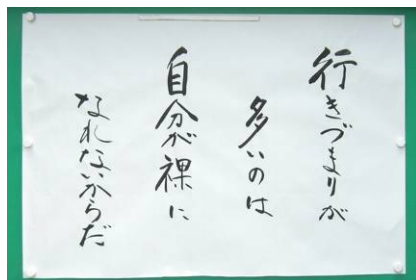 行きづまりが
多いのは
自分が裸に
なれないからだ